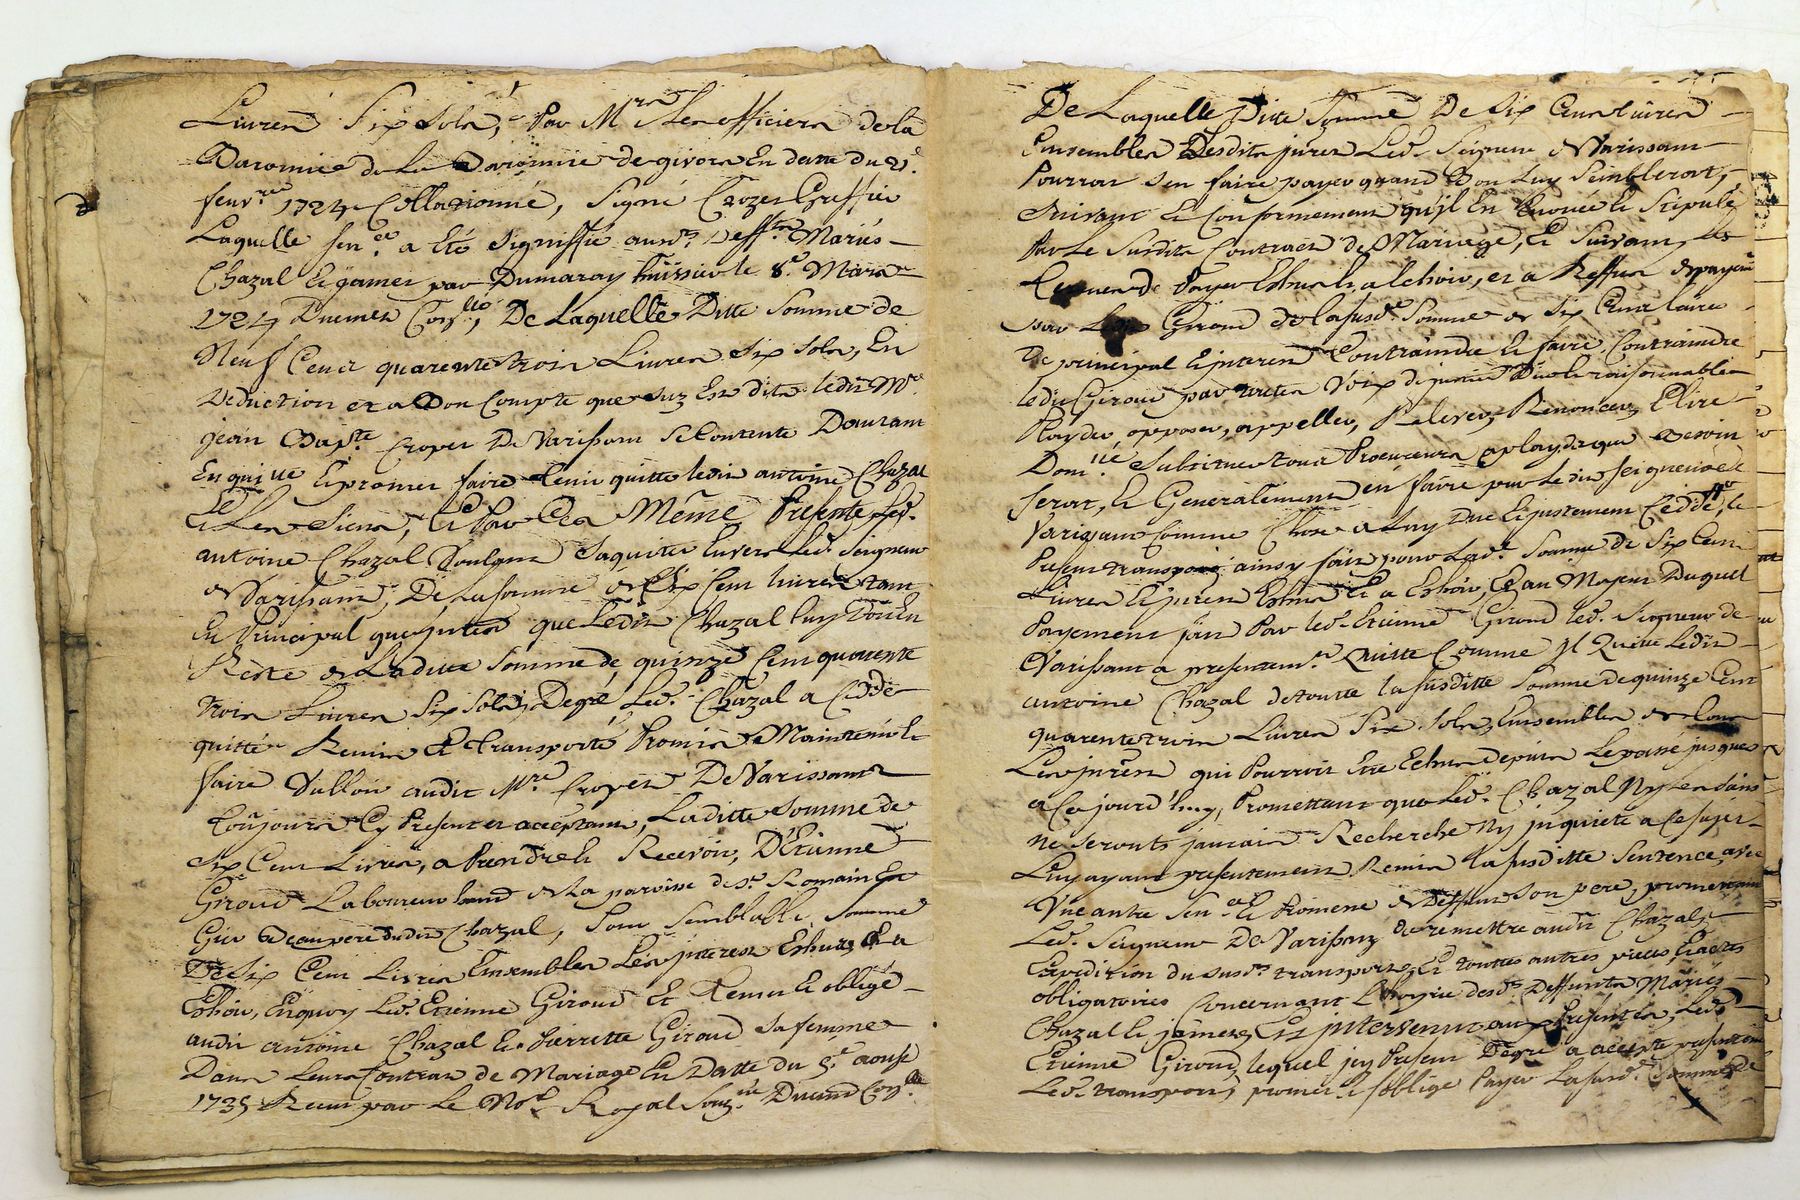 Livres Six sols, Par Mrs Les officiers de la
Baronnie de La Baronnie de givors En datte du 21e
fevrier 1724 Collationné, Signé Crozet Greffier
Laquelle sence a Eté Signiffié aux Deffts Mariés
Chazal Et jamet par Dumaray huissier le 8e Mars
1724 Duement Conllé, De Laquelle Ditte Somme de
Neuf Cent quarente trois Livres Six sols, En
Deduction et a Bon Compte que suz Est dit ledit Mre
jean Bapte Croyet De Varissant Se Contente D'autant
En quitte Et promet faire tenir quitte ledit antoine Chazal
Et Les Siens, Et Par Ces Même Presente Led.
antoine Chazal Voulant Saquiter Envers Led. Seigneur
de Varissant, De La somme de Six Cent livres tant
En Principal que jnterest que Ledit Chazal luy Doit En
Reste de Laditte Somme de quinze Cent quarente
trois Livres Six Sols, De gré Led. Chazal a Ceddé
quitté Remis Et Transporté Promis Maintenir Et
faire Valloir audit Mre Croyet De Varissant
toujours Cy Present et acceptant, Laditte Somme de
Six Cent Livres, a Prendre Et Recevoir, D'Etienne
Giroud Laboureur de La paroisse de St Romain En
Gier Beaupere dudit Chazal, Pour Semblable Somme
De Six Cent Livres Ensembles Les jnterest Eshus Et a
Eshoir, Enquoy Led. Etienne Giroud Et Tenu Et obligé
audit antoine Chazal Et Pierrette Giroud Sa femme
Dans Leurs Contrat de Mariage En Datte du 5e aoust
1735 Receu par Le Nore Royal Souzné Duement Conllé
De Laquelle Ditte Somme De Six Cent Livres
Ensembles Desdits jnterest Led. Seigneur de Varissant
Pourrat Sen faire payer quand Bon Luy Semblerat,
Suivant Et Conformement qu'jl En Enoncé Et Stipulé
Par Le Susdits Contract de Mariage, Et Suivant les
Termes de Payer Eshus Et a Eshoir, et a Reffus de payement
par Led. Giroud de la susd. Somme de Six Cent Livres
De principal Et jnterest Contraindre Et faire Contraindre
ledit Giroud par toutes Voix de justice Dues Et raisonnables
Playder, opposer, appeller, Relever, Renoncer, Elire
Domlle Substituer tous Procureurs a playds que Besoin
Serat, Et Generalement en faire par Ledit Seigneur de
Varissant Comme Chose a Luy Due Et justement Ceddé, Le
Present transport ainsy fait pour Lad. Somme de Six Cent
Livres Et jnterest Eshus Et a Eshoir, Et au Moyen Duquel
Payement fait Par led. Etienne Giroud led. Seigneur de
Varissant a presentement Quitte Comme jl Quitte Ledit
antoine Chazal de toutte la susditte Somme de quinze Cent
quarente trois Livres Six Sols, Ensembles de tous
Les jnterest qui Pourroit Etre Eshus depuis Le passé jusques
a Cejourd'huy, Promettant que Led. Chazal Ny les siens
ne Seronts jamais Recherché Ny jnquieté a Ce Sujet
Luy ayant presentement Remis la susditte Sentence avec
Vne autre Sence Et Promesse de Deffunt Son pere, promettant
Led. Seigneur De Varissant de remettre audit Chazal
Expedition du susd transport, Et toutes autres pieces Et actes
obligatoires Concernant L'hoyrie desd. Deffunts Mariés
Chazal Et jamet, Est jntervenu aux Presentes, Led.
Etienne Giroud, lequel jcy Present De gré a accepté presentement
Led. transport, promet Et s'oblige Payer La susd. Somme de